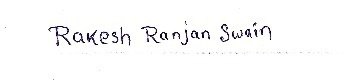 Rakesh Ranjan Swain